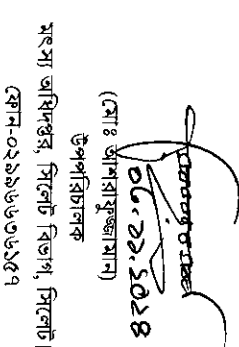 ০৬.১১.২০২৪
(মোঃ আশরাফুজ্জামান)
উপপরিচালক
মৎস্য অধিদপ্তর, সিলেট বিভাগ, সিলেট।
ফোন-০২৯৯৬৬৩৬১৫৭